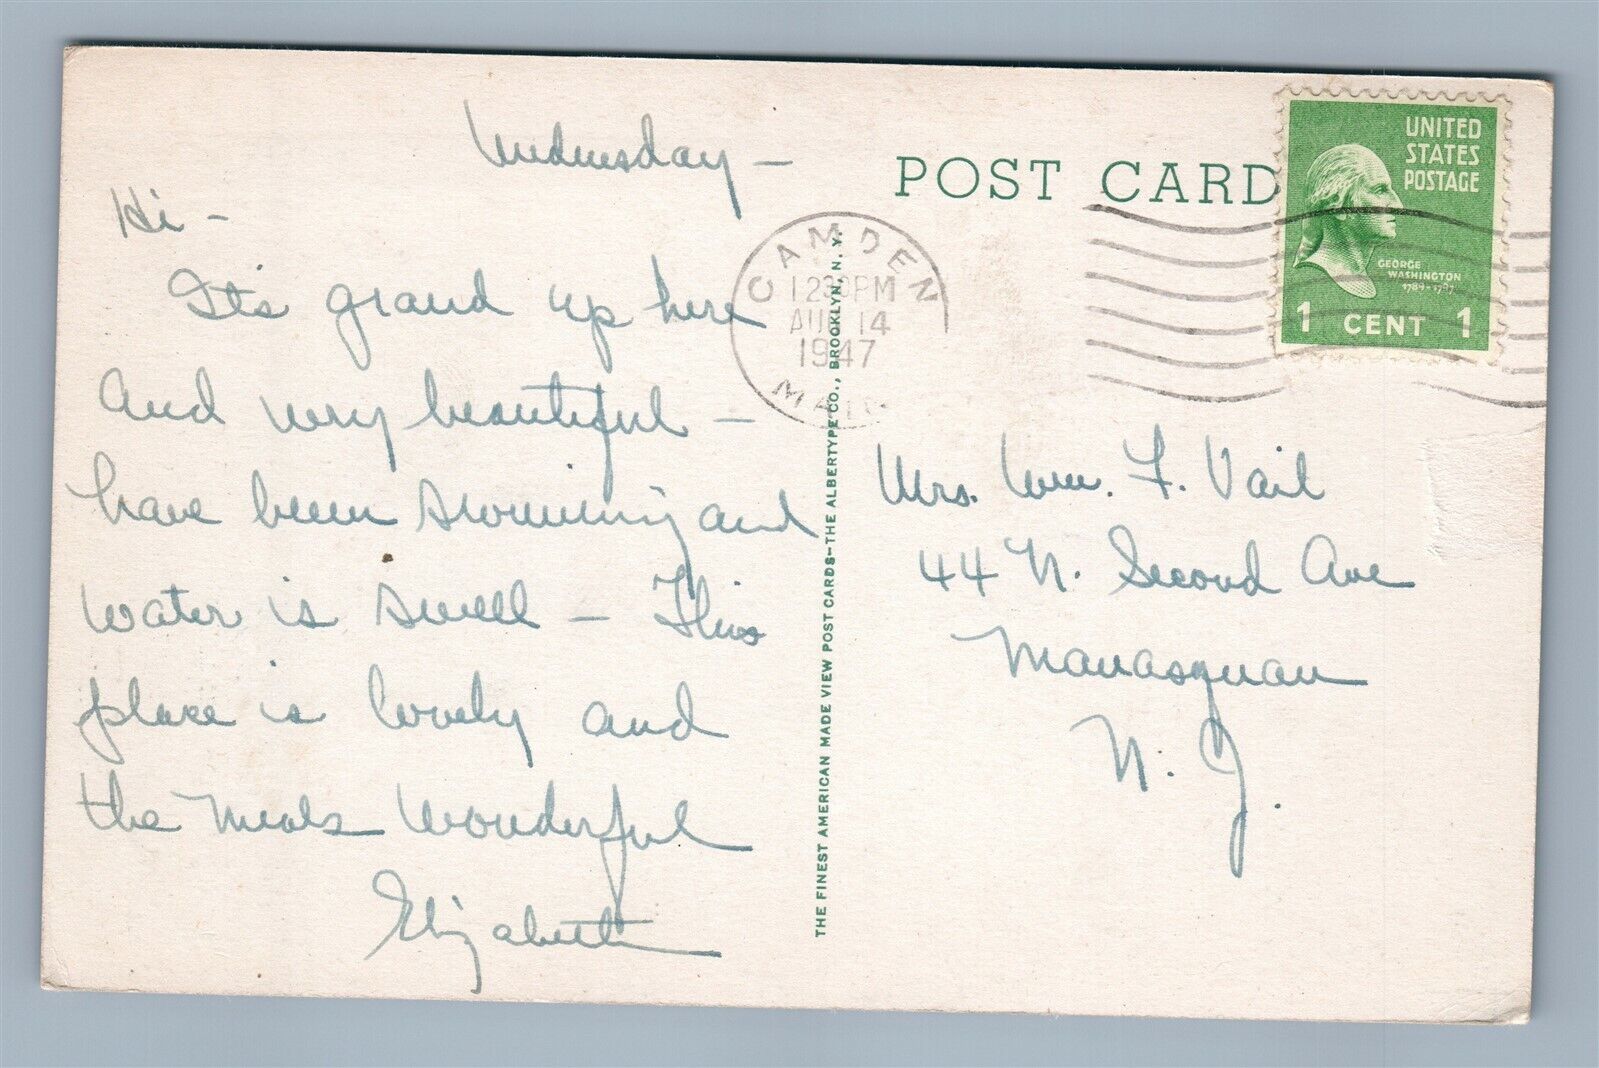 Wednesday —
Hi —
It's grand up here
and very beautiful —
have been swimming and
water is swell — This
place is lovely and
the meals wonderful
Elizabeth
POST CARD
UNITED
STATES
POSTAGE
GEORGE
WASHINGTON
1789-1797
1 CENT 1
CAMDEN
12 30 PM
AUG 14
1947
MAINE
THE FINEST AMERICAN MADE VIEW POST CARDS—THE ALBERTYPE CO., BROOKLYN, N. Y.
Mrs. Wm. F. Vail
44 N. Second Ave
Manasquan
N. J.